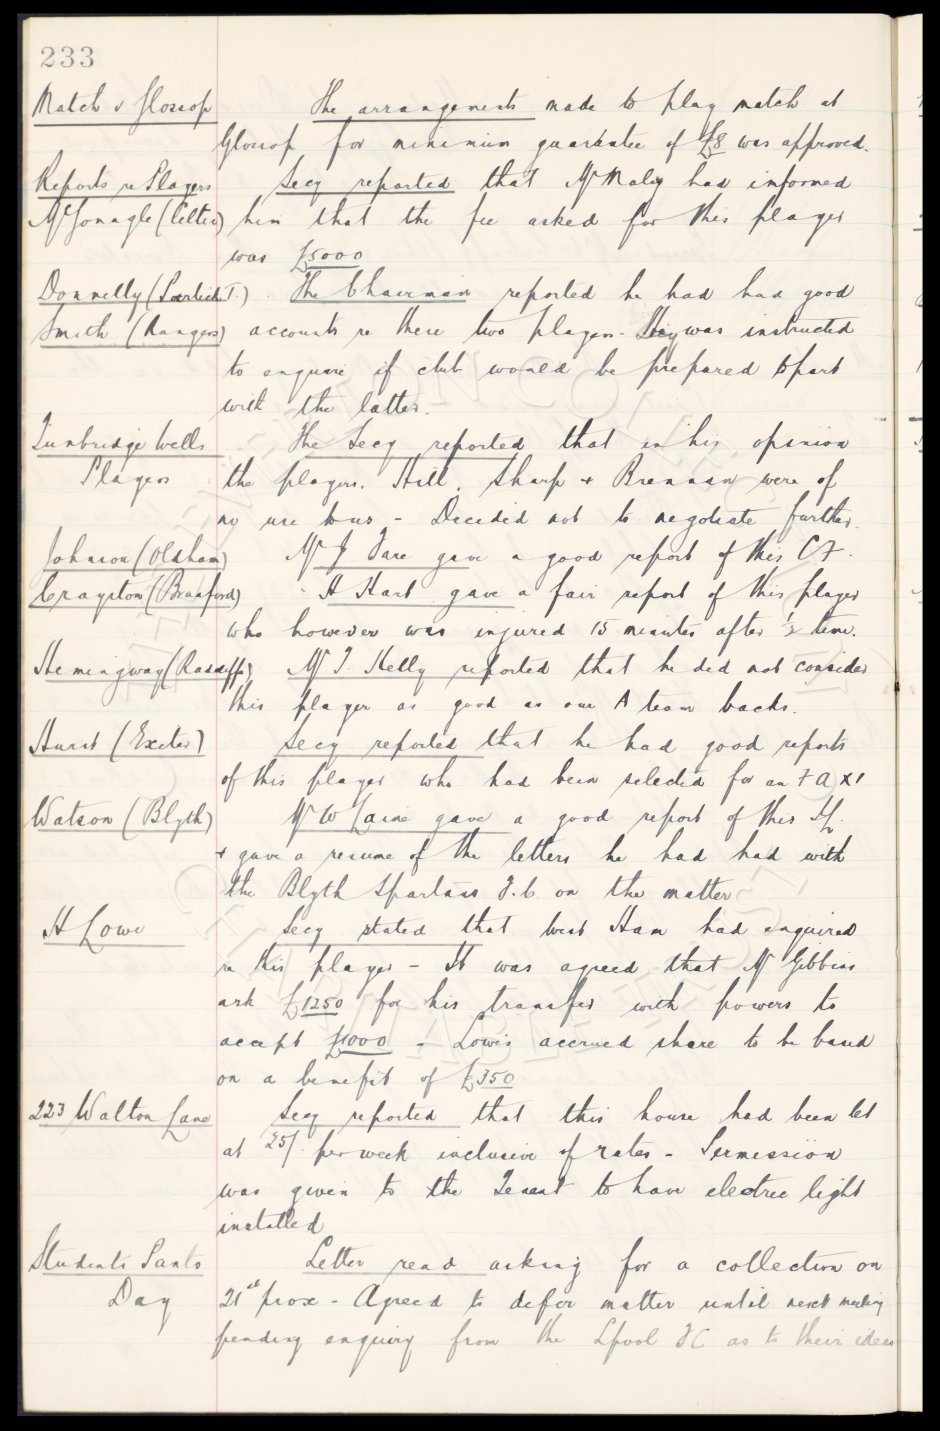 233
Match v Glossop The arrangements made to play match at
Glossop for minimum guarantee of £8 was approved.
Reports re Players Secy reported that Mr Maley had informed
McGonagle (Celtic) him that the fee asked for this player
was £5000
Donnelly (Partick T.) The Chairman reported he had had good
Smith (Rangers) accounts re these two players - Secy was instructed
to enquire if club would be prepared to part
with the latter.
Tunbridge Wells The Secy reported that in his opinion
Players the players, Hill, Sharp + Brennan were of
no use to us - Decided not to negotiate further.
Johnson (Oldham) Mr J Fare gave a good report of this CF.
Crayston (Bradford) H Hart gave a fair report of this player
who however was injured 15 minutes after ½ time.
Hemingway (Radcliffe) Mr T. Kelly reported that he did not consider
this player as good as our A team backs.
Hurst (Exeter) Secy reported that he had good reports
of this player who had been selected for an FA XI
Watson (Blyth) Mr W gave a good report of this
+ gave a resume of the letters he had had with
the Blyth Spartans F.C. on the matter
H Lowe Secy stated that West Ham had enquired
re this player - It was agreed that Mr Gibbins
ask £1250 for his transfer with powers to
accept £1000 - Lowe's accrued share to be based
on a benefit of £350
223 Walton Lane Secy reported that this house had been let
at 25/- per week inclusive of rates - Permission
was given to the Tenant to have electric light
installed
Students Pants Letter read asking for a collection on
Day 21st prox - Agreed to defer matter until next meeting
pending enquiry from the Lpool FC as to their ideas